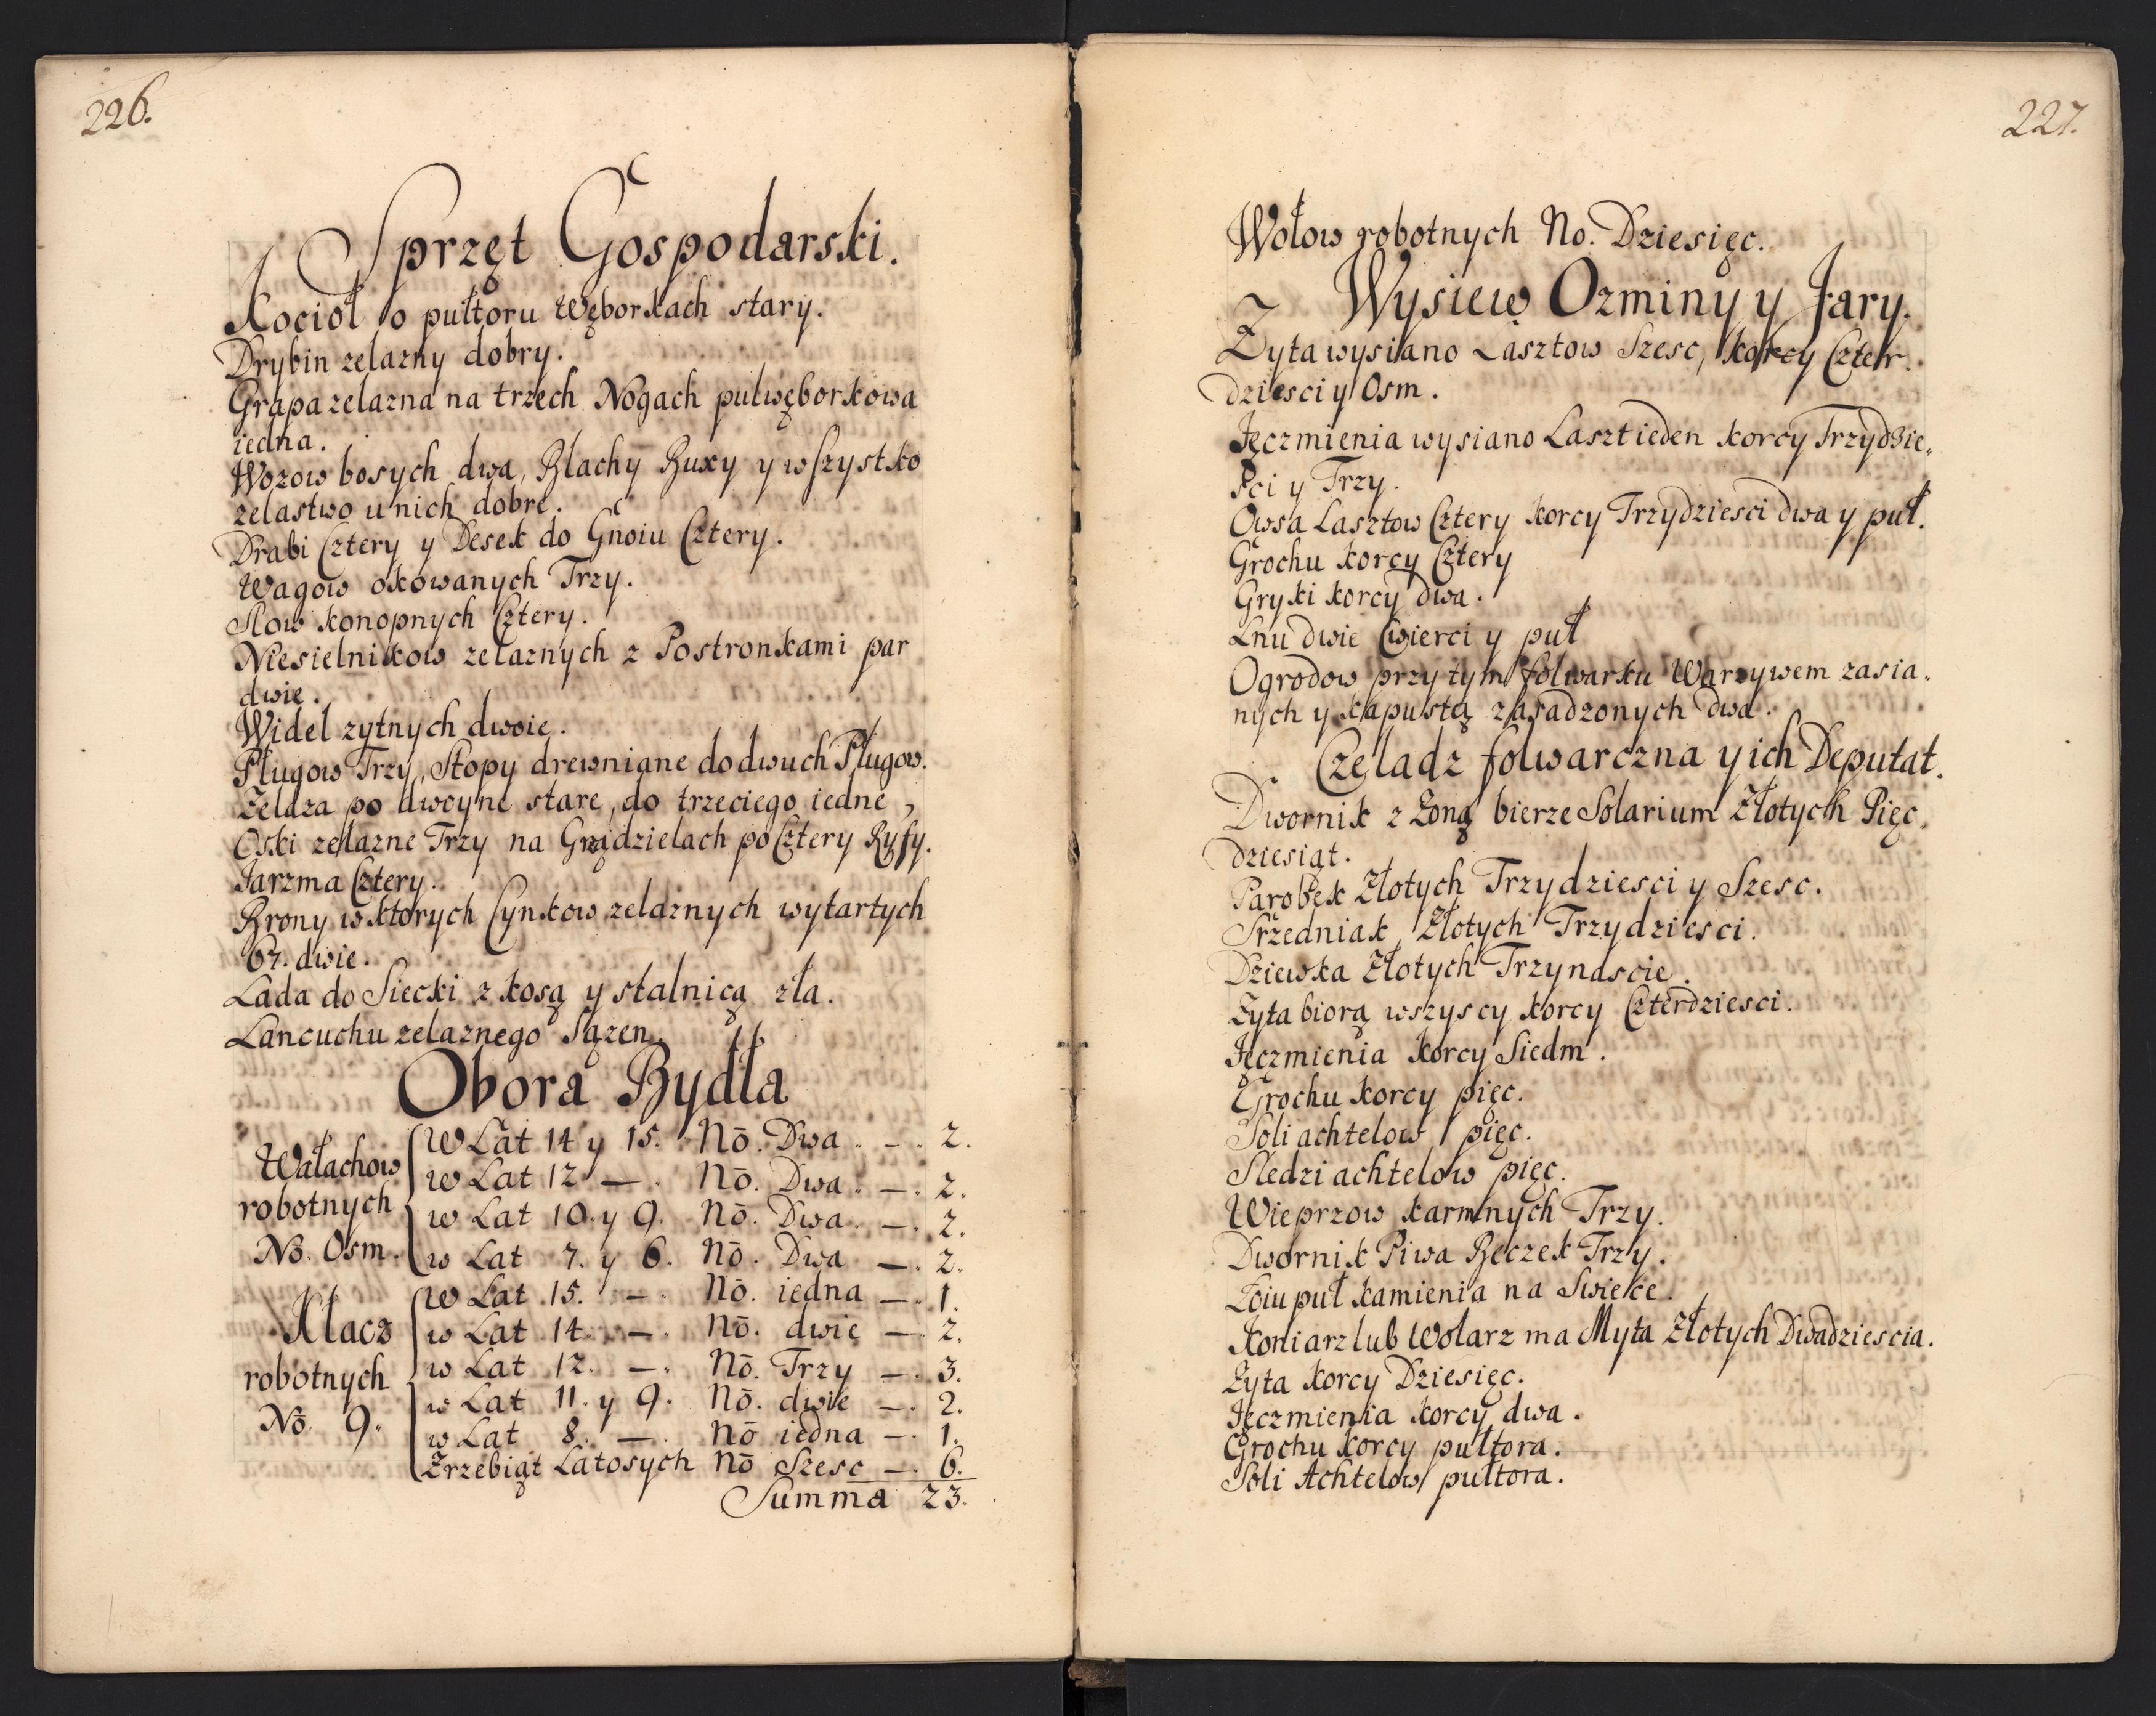 226.
Sprzęt Gospodarski.
Kocioł o pułtoru Węborkach stary.
Drybin zelazny dobry.
Grapa zelazna na trzech Nogach pulwęborkowa
iedna.
Wozow bosych dwa, Blachy Buxy y wszystko
zelastwo u nich dobre.
Drabi Cztery y Desek do Gnoiu Cztery.
Wagow okowanych Trzy.
Slow konopnych Cztery.
Niesielnikow zelaznych z Postronkami par
dwie.
Widel zytnych dwoie.
Pługow Trzy, Stopy drewniane do dwuch Pługow.
Zelaza po dwoyne stare, do trzeciego iedne,
Oski zelazne Trzy na Grądzielach po Cztery Ryfy.
Jarzma Cztery.
Brony w ktorych Cynkow zelaznych wytartych
67. dwie.
Lada do Siecki z kosą y stalnicą zła.
Lancuchu zelaznego Sązen.
Obora Bydła
Wałachow
robotnych
No. Osm.
W Lat 14 y 15. No. Dwa . — . 2.
w Lat 12 — . No. Dwa . — . 2.
w Lat 10. y 9. No. Dwa . — . 2.
w Lat 7. y 6. No. Dwa — . 2.
Klacz
robotnych
No. 9.
W Lat 15. — . No. iedna — . 1.
w Lat 14. — . No. dwie — . 2.
w Lat 12. — . No. Trzy — . 3.
w Lat 11. y 9. No. dwie — . 2.
w Lat 8. — . No iedna — . 1.
Zrzebiąt Latosych No Szesc — . 6.
Summa 23.
227.
Wołow robotnych No. Dziesięc.
Wysiew Ozminy y Jary.
Zyta wysiano Łasztow Szesc, korcy Czter.
dziesci y Osm.
Jęczmienia wysiano Laszt ieden korcy Trzydzie,,
sci y Trzy.
Owsa Lasztow Cztery korcy Trzydziesci dwa y puł.
Grochu korcy Cztery
Gryki korcy dwa.
Lnu dwie Cwierci y puł
Ogrodow przy tym folwarku Warzywem zasia,,
nych y kapustą zasadzonych dwa.
Czeladz folwarczna y ich Deputat.
Dwornik z Zoną bierze Solarium Złotych Pięc,,
dziesiąt.
Parobek Złotych Trzydziesci y Szesc.
Srzedniak Złotych Trzydziesci.
Dziewka Złotych Trzynascie.
Zyta biorą wszyscy korcy Czterdziesci.
Jęczmienia korcy Siedm.
Grochu korcy pięc.
Soli achtelow pięc.
Sledzi achtelow pięc.
Wieprzow karmnych Trzy.
Dwornik Piwa Beczek Trzy.
Łoiu puł kamienia na Swiece.
Koniarz lub Wolarz ma Myta Złotych Dwadziescia.
Zyta korcy Dziesięc.
Jęczmienia korcy dwa.
Grochu korcy pułtora.
Soli Achtelow pułtora.